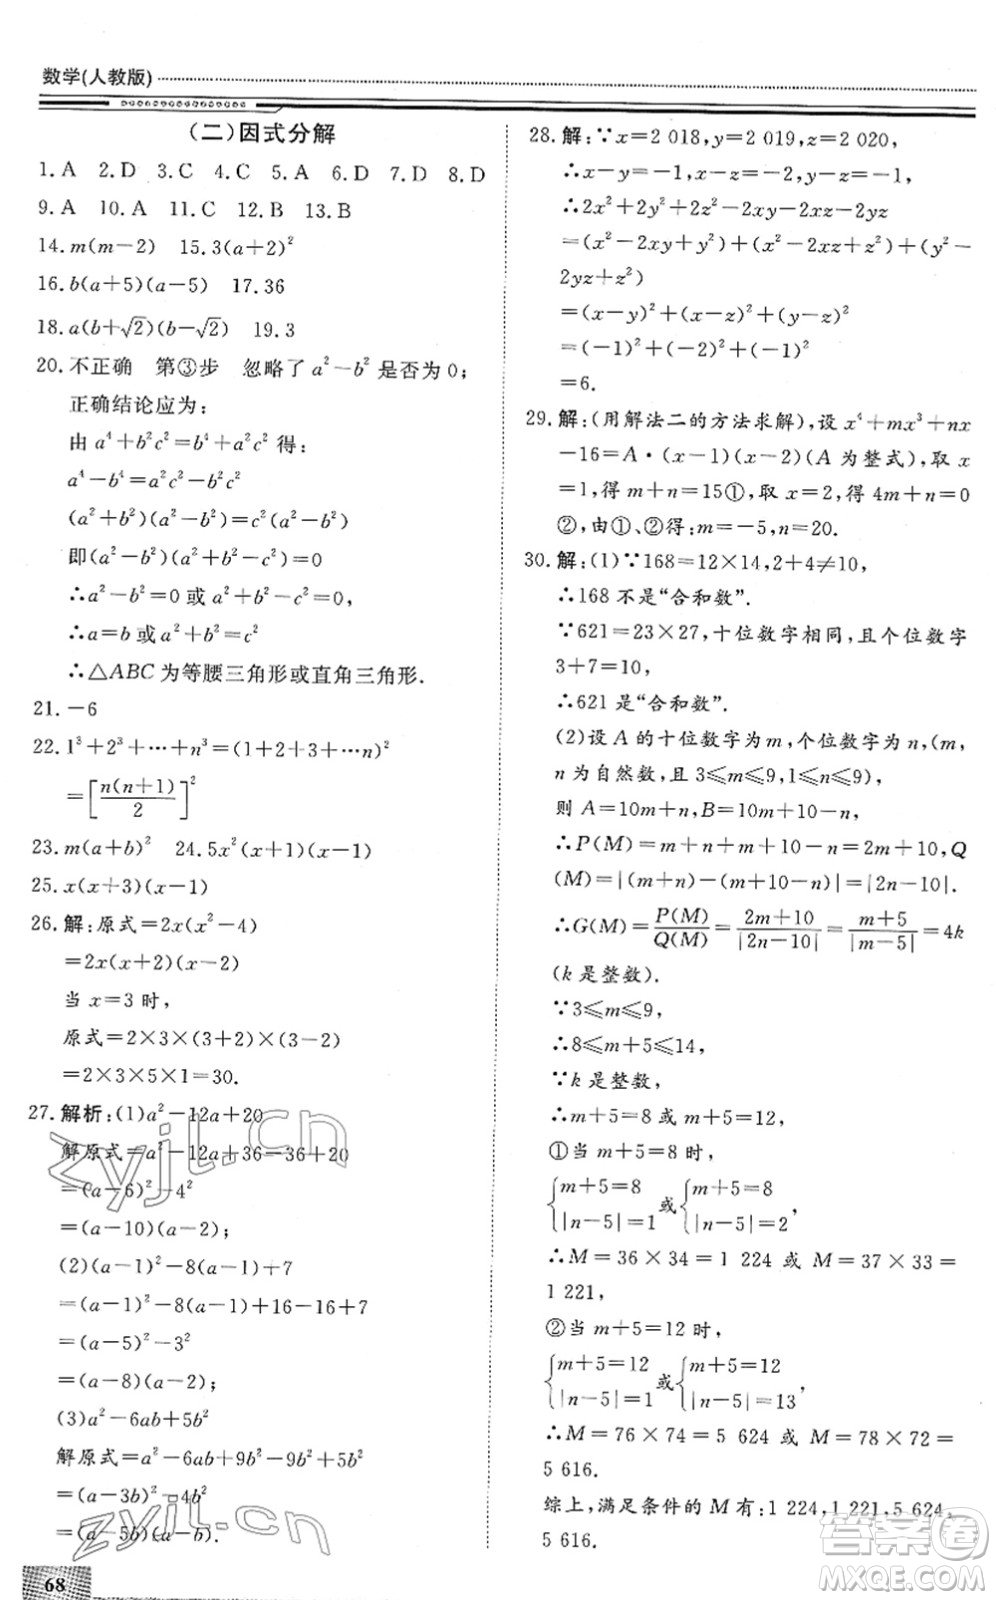 数学(人教版)
(二)因式分解
1. A 2. D 3. C 4. C 5. A 6. D 7. D 8. D
9. A 10. A 11. C 12. B 13. B
14. m(m−2) 15. 3(a+2)²
16. b(a+5)(a−5) 17. 36
18. a(b+√2)(b−√2) 19. 3
20. 不正确 第③步 忽略了 a²−b² 是否为 0;
正确结论应为:
由 a⁴+b²c²=b⁴+a²c² 得:
a⁴−b⁴=a²c²−b²c²
(a²+b²)(a²−b²)=c²(a²−b²)
即(a²−b²)(a²+b²−c²)=0
∴a²−b²=0 或 a²+b²−c²=0,
∴a=b 或 a²+b²=c²
∴△ABC 为等腰三角形或直角三角形.
21. −6
22. 1³+2³+⋯+n³=(1+2+3+⋯n)²
=[n(n+1)/2]²
23. m(a+b)² 24. 5x²(x+1)(x−1)
25. x(x+3)(x−1)
26. 解:原式=2x(x²−4)
=2x(x+2)(x−2)
当 x=3 时,
原式=2×3×(3+2)×(3−2)
=2×3×5×1=30.
27. 解析:(1)a²−12a+20
解原式=a²−12a+36−36+20
=(a−6)²−4²
=(a−10)(a−2);
(2)(a−1)²−8(a−1)+7
=(a−1)²−8(a−1)+16−16+7
=(a−5)²−3²
=(a−8)(a−2);
(3)a²−6ab+5b²
解原式=a²−6ab+9b²−9b²+5b²
=(a−3b)²−4b²
=(a−5b)(a−b).
68
28. 解:∵x=2 018,y=2 019,z=2 020,
∴x−y=−1,x−z=−2,y−z=−1,
∴2x²+2y²+2z²−2xy−2xz−2yz
=(x²−2xy+y²)+(x²−2xz+z²)+(y²−
2yz+z²)
=(x−y)²+(x−z)²+(y−z)²
=(−1)²+(−2)²+(−1)²
=6.
29. 解:(用解法二的方法求解),设 x⁴+mx³+nx
−16=A·(x−1)(x−2)(A 为整式),取 x
=1,得 m+n=15①,取 x=2,得 4m+n=0
②,由①、②得:m=−5,n=20.
30. 解:(1)∵168=12×14,2+4≠10,
∴168 不是“合和数”.
∵621=23×27,十位数字相同,且个位数字
3+7=10,
∴621 是“合和数”.
(2)设 A 的十位数字为 m,个位数字为 n,(m,
n 为自然数,且 3⩽m⩽9,1⩽n⩽9),
则 A=10m+n,B=10m+10−n,
∴P(M)=m+n+m+10−n=2m+10,Q
(M)=|(m+n)−(m+10−n)|=|2n−10|.
∴G(M)=P(M)/Q(M)=2m+10/|2n−10|=m+5/|m−5|=4k
(k 是整数).
∵3⩽m⩽9,
∴8⩽m+5⩽14,
∵k 是整数,
∴m+5=8 或 m+5=12,
①当 m+5=8 时,
{m+5=8 |n−5|=1 或 {m+5=8 |n−5|=2,
∴M=36×34=1 224 或 M=37×33=
1 221,
②当 m+5=12 时,
{m+5=12 |n−5|=1 或 {m+5=12 |n−5|=13,
∴M=76×74=5 624 或 M=78×72=
5 616.
综上,满足条件的 M 有:1 224,1 221,5 624,
5 616.
zyjl.cn
zyjl.cn
答案圈
MXQE.COM